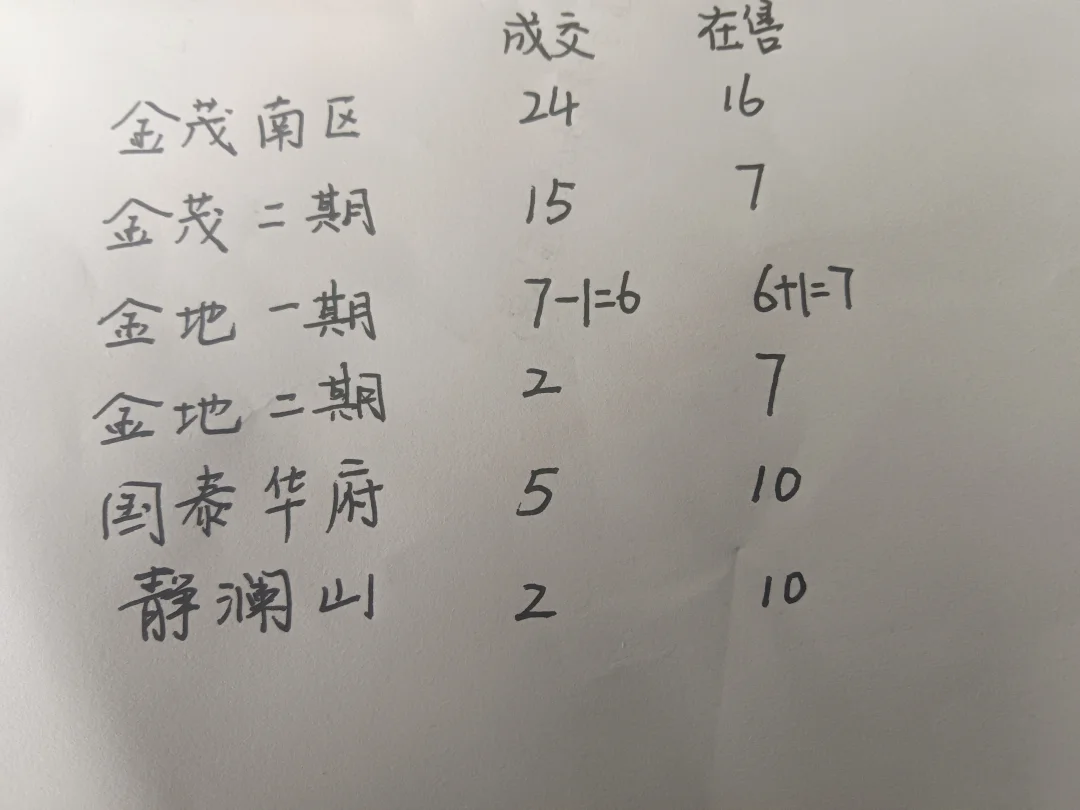 成交 在售
金茂南区 24 16
金茂二期 15 7
金地一期 7-1=6 6+1=7
金地二期 2 7
国泰华府 5 10
静澜山 2 10